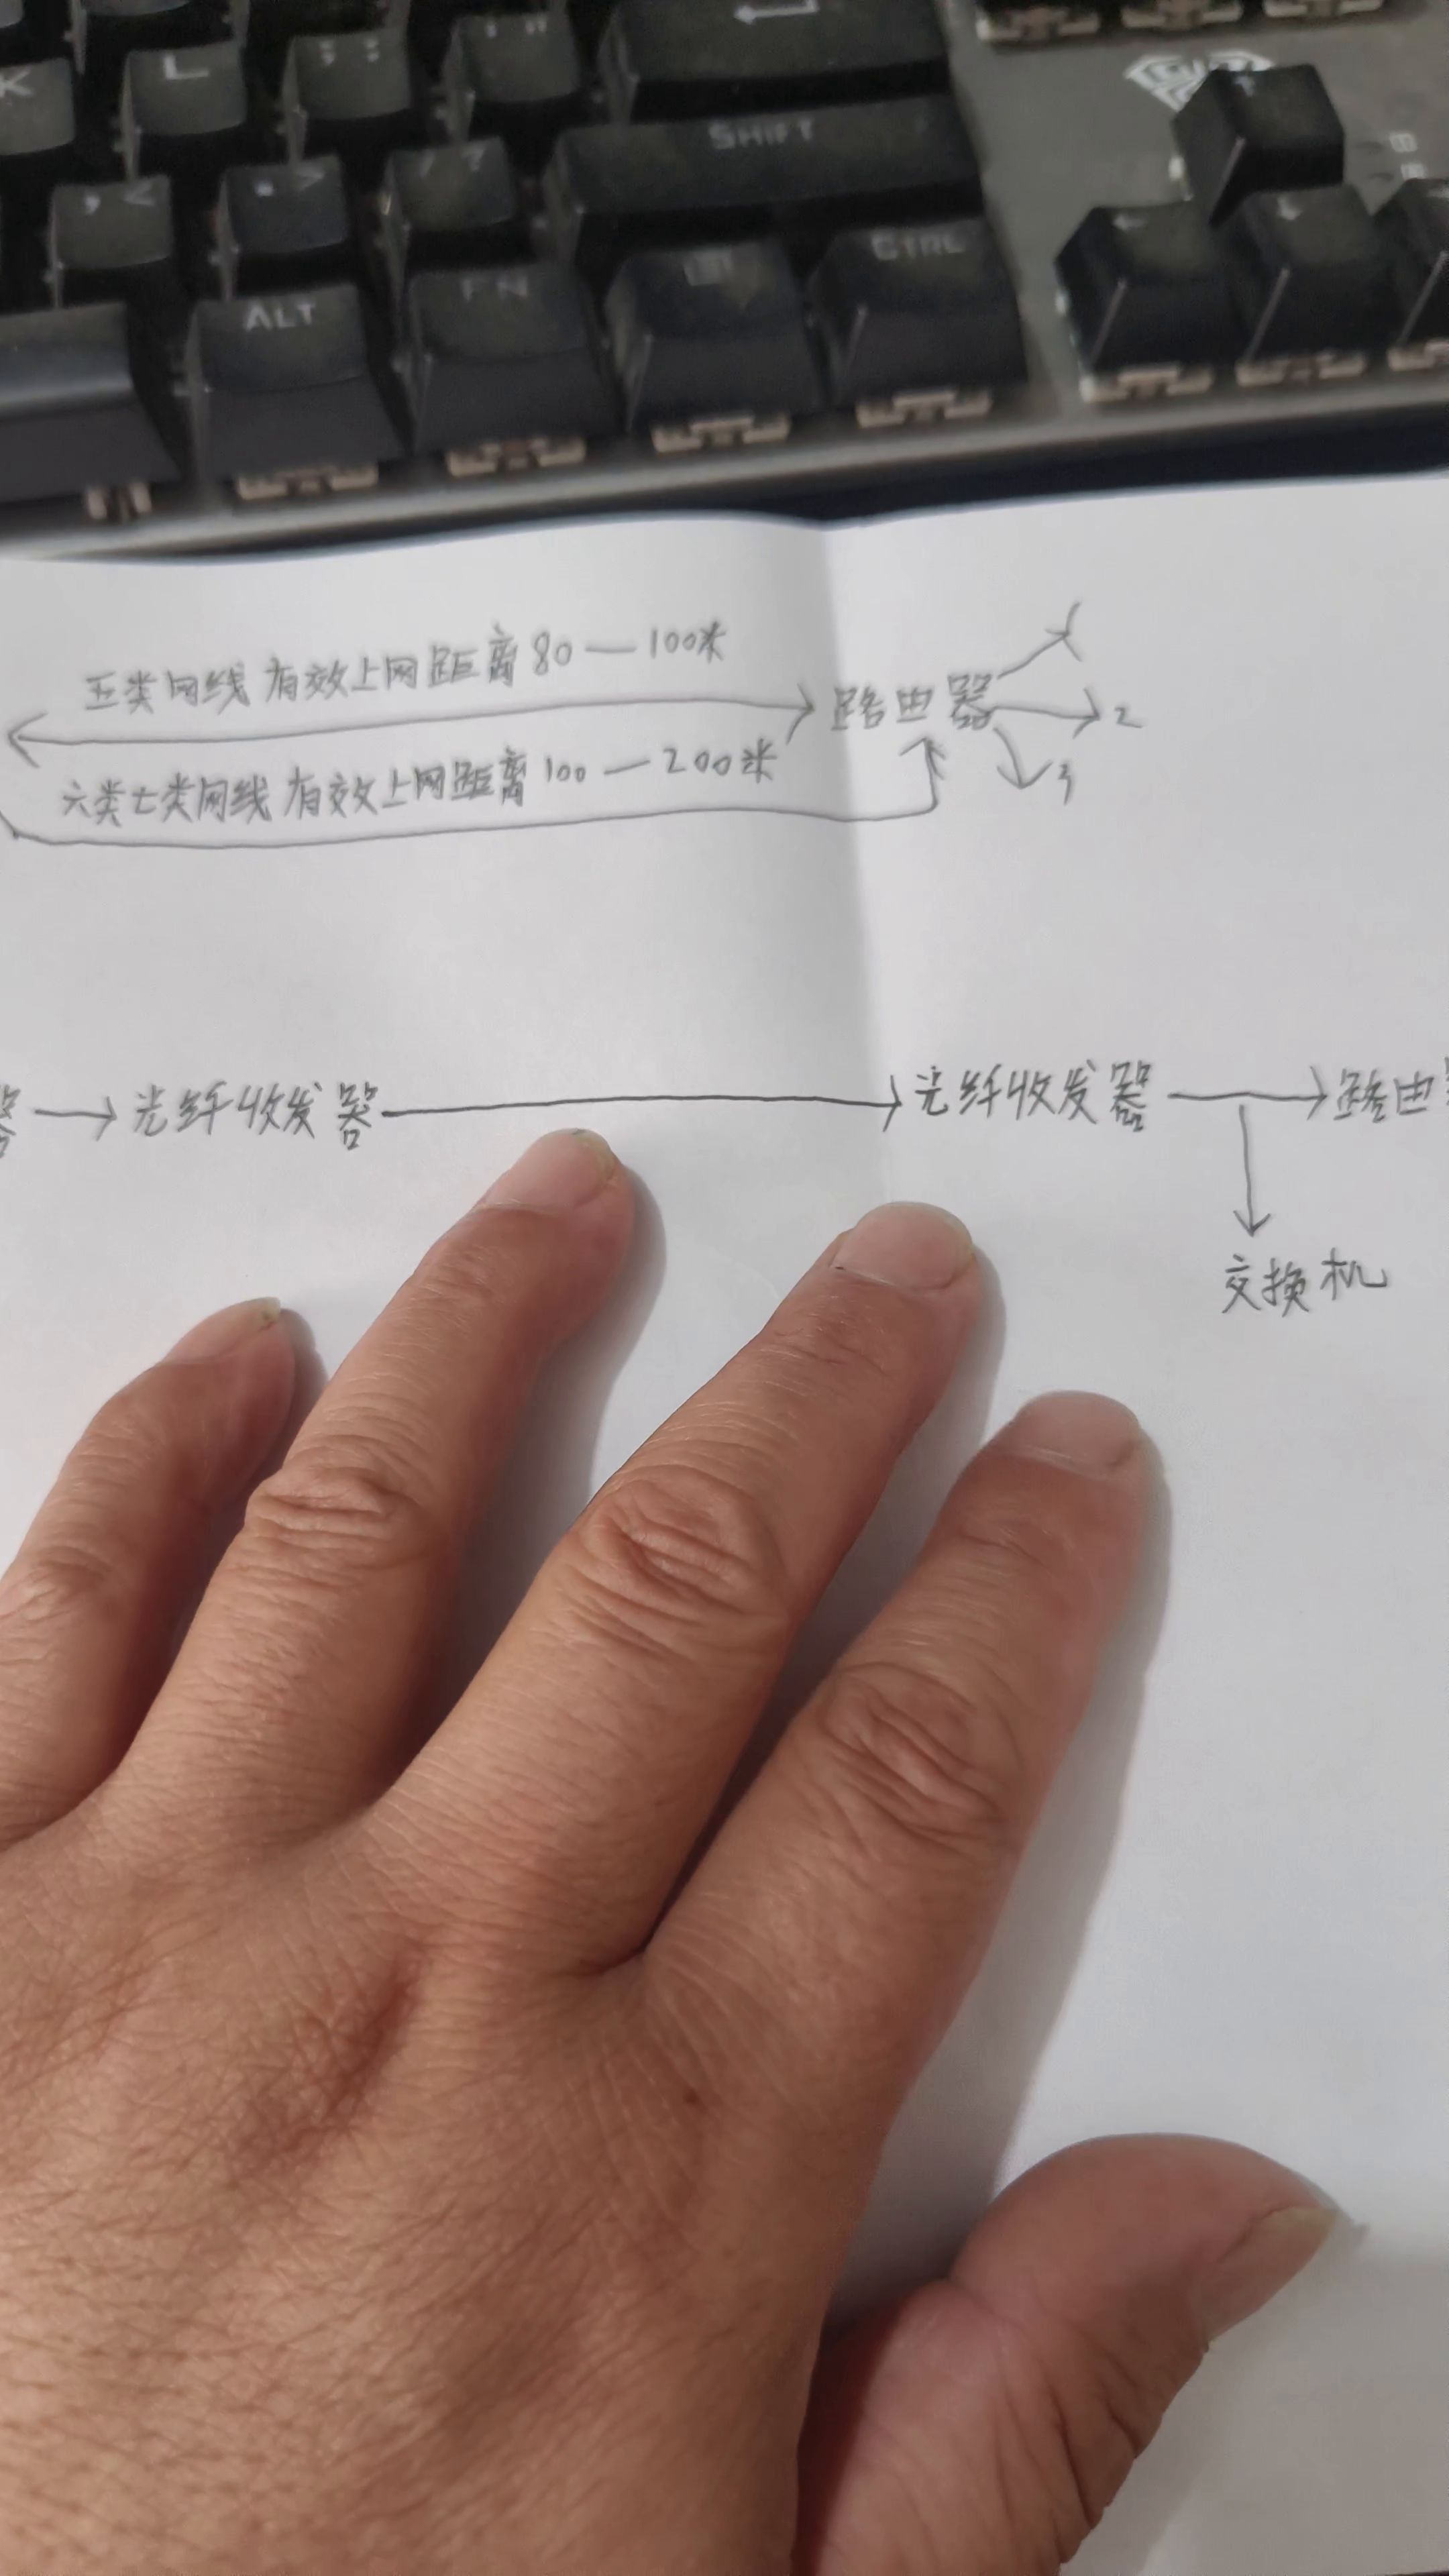 K L ; : ' "
SHIFT
, < . > / ?
ALT FN CTRL
五类网线有效上网距离80—100米
路由器
1
2
3
六类七类网线有效上网距离100—200米
器 光纤收发器 光纤收发器 路由器
交换机